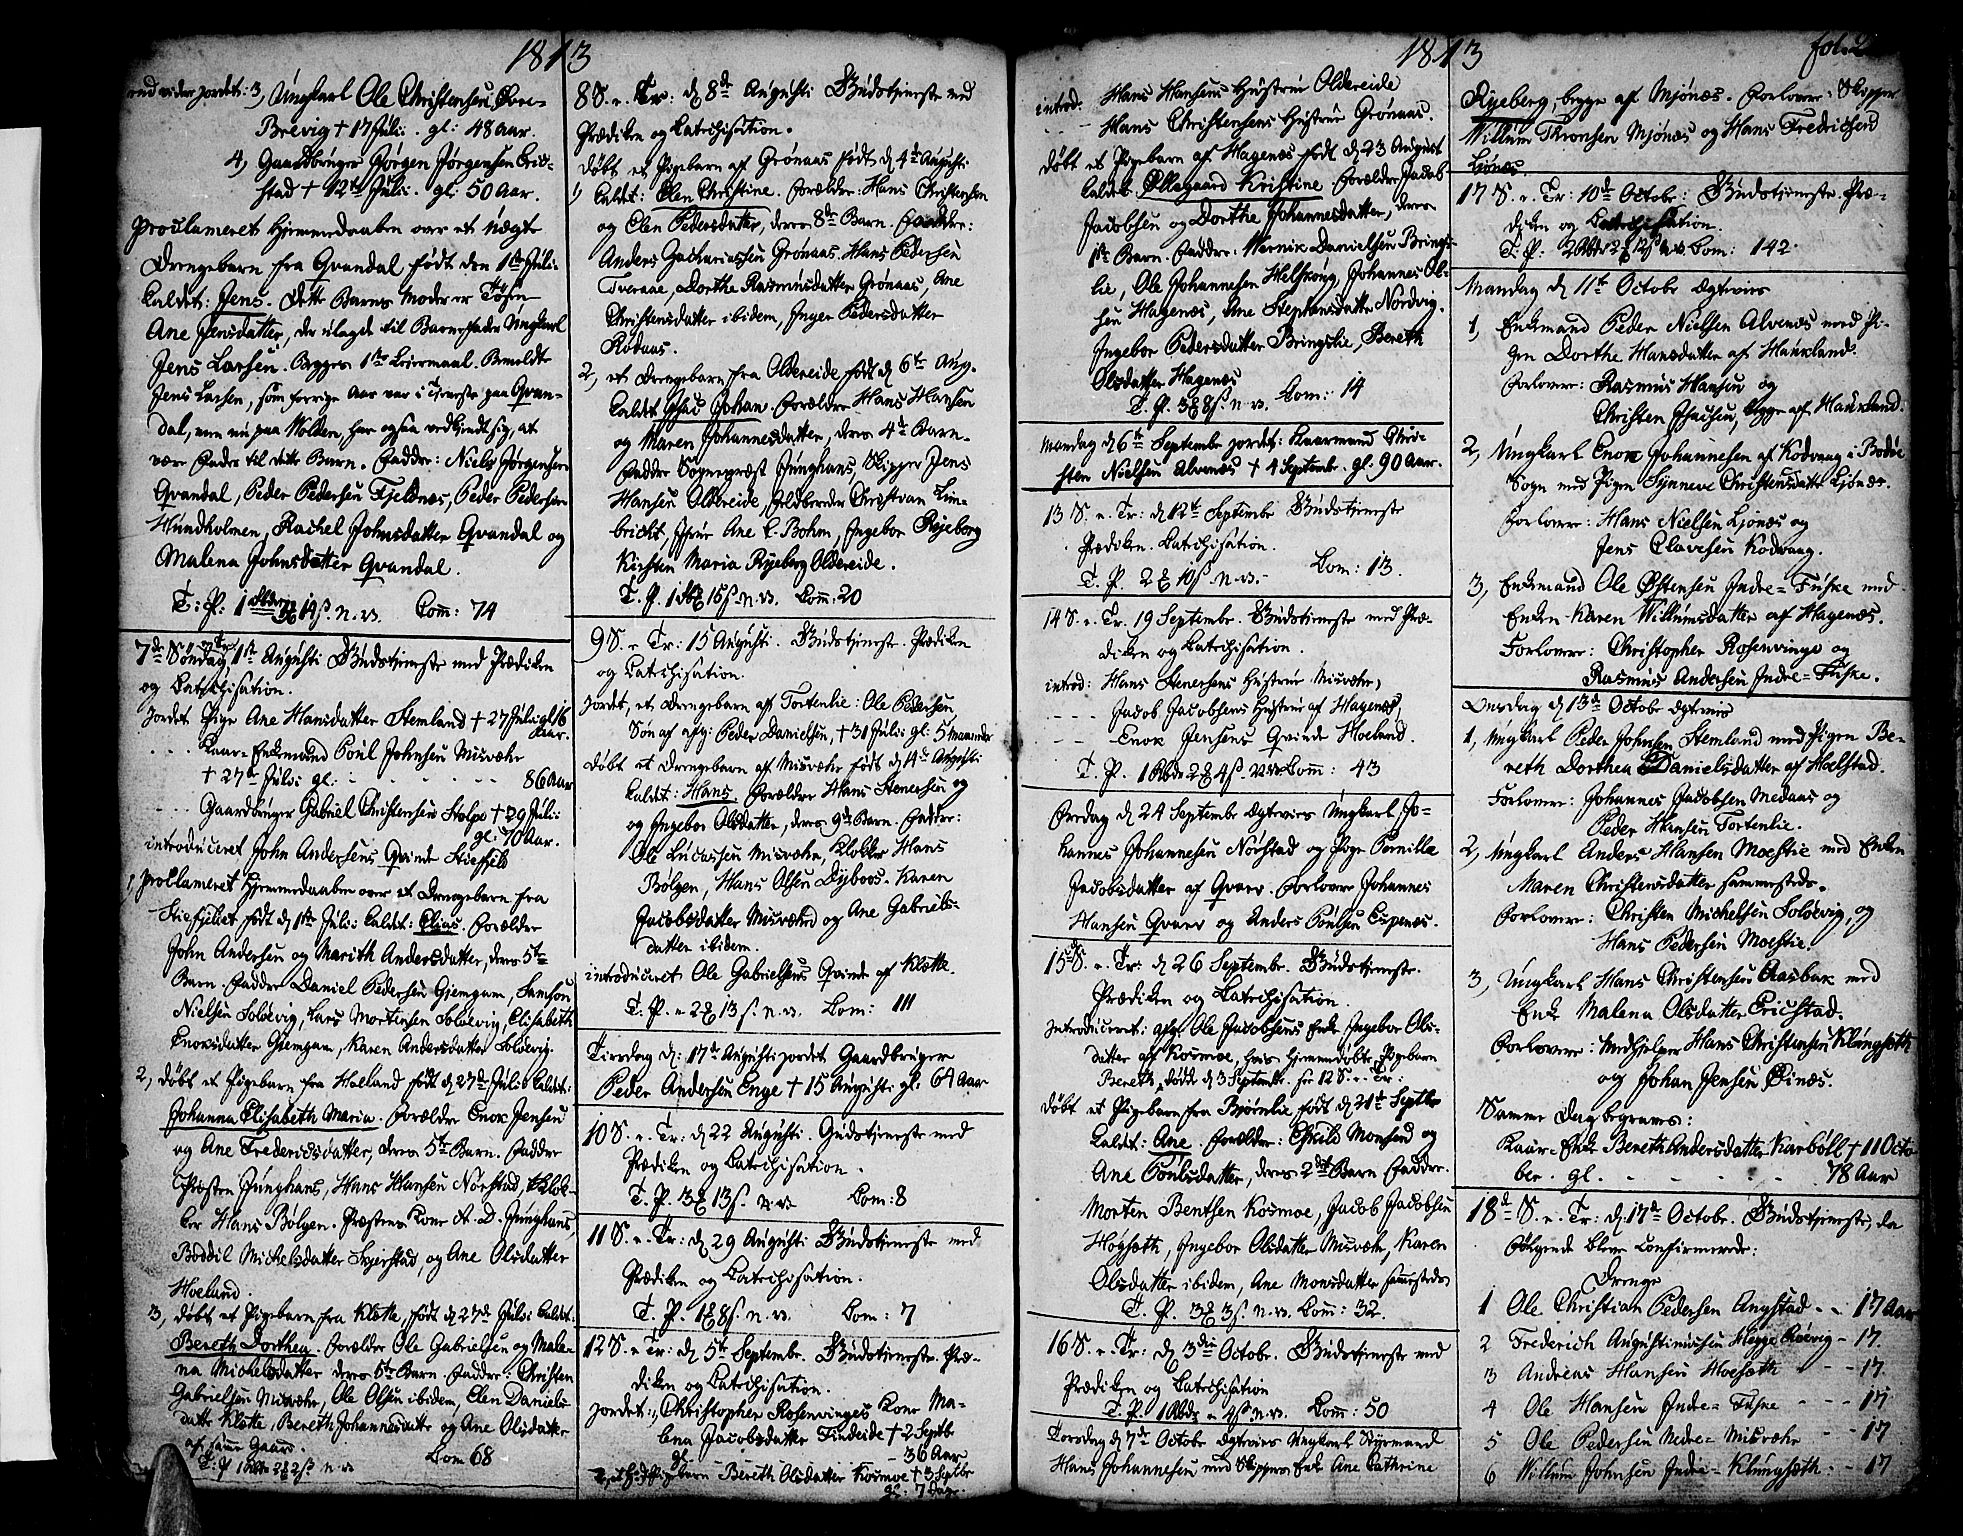 1813
end vider jordet: 3, Ungkarl Ole Christensen Øvre-
Brevig + 17 Juli. gl: 48 Aar.
4, Gaardbruger Jørgen Jørgensen Eric-
stad + 12te Juli. gl: 50 Aar.
Proclameret Hjemmedaaben over et uægte
Drengebarn fra Qvandal født den 1ste Juli.
Caldet: Jens. Dette Barns Moder er Tøsen
Ane Jensdatter, der udlagde til Barnefader Ungkarl
Jens Larsen. Begges 1ste Leiermaal. Bemeldte
Jens Larsen, som forrige Aar var i Tjeneste paa Qvan-
dal, men nu paa Molden, har ogsaa vedkjendt sig, at
være Fader til dette Barn. Faddere: Niels Jørgensen
Qvandal, Peder Pedersen Fjeldnæs, Peder Pedersen
Hundholmen, Rachel Johnsdatter Qvandal og
Malena Johnsdatter Qvandal.
T: P: 14 ß. n.v. Com: 74
7de Søndag 1ste Augusti Gudstjeneste med Prædiken
og Catechisation.
Jordet Pige Ane Hansdatter Stemland + 27 Juli gl 16
Aar.
Kaar-Enkemand Poul Johnsen Misvæhr
+ 27de Juli gl: - - - - - 86 Aar
Gaardbruger Gabriel Christensen Stolpe + 29 Juli:
gl: 70 Aar.
introduceret John Andersens Qvinde Stiefjeld
1, Proclameret Hjemmedaaben over et Drengebarn fra
Stiefjeldet født d 1ste Juli: Caldet: Elias. Forældre
John Andersen og Marith Andersdatter, deres 5te
Barn. Faddre Daniel Pedersen Gjemgam, Samson
Nielsen Soløevig, Lars Mortensen Soløevig, Elisabeth
Enoksdatter Gjemgam, Karen Andersdatter Soløevig.
2, døbt et Pigebarn fra Hoeland født d 27de Juli Caldet:
Johanna Elisabeth Maria. Forældre Enok Jensen
og Ane Fredericsdatter, deres 5te Barn. Faddre
Præsten Junghans, Hans Hansen Nørstad, Klok-
ker Hans Bølgen. Præstens Kone A. D. Junghans,
Boddil Michelsdatter Skjerstad, og Ane Olsdatter
Hoeland.
3, døbt et Pigebarn fra Kløtte, født d 27de Juli: Caldet:
Bereth Dorthea. Forældre Ole Gabrielsen og Male-
na Michelsdatter deres 5te Barn. Faddre: Christen
Gabrielsen Misvæhr, Ole Olsen ibidem, Elen Daniels-
datter Kløtte, Bereth Johannesdatter og Ane Olsdatter
af samme Gaard.
Com 68
8 S. e. Tr: d 8de Augusti Gudstjeneste med
Prædiken og Catechisation.
Døbt et Pigebarn af Grønaas født d 4de Augusti
1, Caldet: Elen Christine. Forældre: Hans Christensen
og Elen Pedersdatter, deres 8de Barn. Faddre:
Anders Zachariassen Grønaas, Hans Pedersen
Tveraae, Dorthe Rasmusdatter Grønaas, Ane
Christensdatter ibidem, Inger Pedersdatter
Rødaas.
2, et Drengebarn fra Oldereide født d 6te Aug.
Caldet Isac Johan. Forældre Hans Hansen
og Maren Johannesdatter, deres 4de Barn.
Faddre Sognepræst Junghans, Skipper Jens
Hansen Oldereide, Christian Lim-
bricht, Jfru Ane C. Bohm, Ingebor Ryeberg
Kirsten Maria Ryeberg Oldereide.
T. P. 15 ß. n.v. Com: 20
9 S. e Tr: 15 Augusti. Gudstjeneste. Prædiken
og Catechisation.
Jordet, et Drengebarn af Tortenlie: Ole Pedersen
Søn af afg: Peder Danielsen, + 31 Juli: gl: 5 maaneder
Døbt et Drengebarn af Misvæhr født d 14de Augusti
Caldet: Hans. Forældre Hans Stenersen og
og Ingebor Olsdatter, deres 9de Barn. Faddre:
Ole Lucassen Misvæhr, Klokker Hans
Bølgen, Hans Olsen Dyboos. Karen
Jacobsdatter Misvæhr og Ane Gabriels-
datter ibidem.
introduceret Ole Gabrielsens Qvinde af Kløtte.
T. P. 13 ß. n.v. Com: 111
Tirsdag d: 17de Augusti jordet Gaardbruger
Peder Andersen Enge + 15 Augusti gl: 64 Aar
10 S. e. Tr: d 22 Augusti. Gudstjeneste med
Prædiken og Catechisation.
T. P. 13 ß. n.v. Com: 8
11 S. e. Tr: d 29 Augusti Gudstjeneste med
Prædiken og Catechisation.
T. P. 8 ß. n.v. Com: 7
12 S. e Tr: d 5te Septembr. Gudstjeneste. Præ-
diken og Catechisation.
Jordet: 1, Christopher Rosenvinges Kone Ma-
lena Jacobsdatter Findeide + 2 Septbr
gl: - 36 Aar
2, et Pigebarn Bereth Olsdatter Kosmoe + 3 Septbr
gl: 7 Dage.
1813
introd. Hans Hansens Hustrue Oldereide
- - - Hans Christensens Hustrue Grønaas.
døbt et Pigebarn af Hagenæs født d 23 August
Caldet: Ollegaard Kristine Forældre Jacob
Jacobsen og Dorthe Johannesdatter, deres
1ste Barn. Faddre: Wernik Danielsen Brings-
lie, Ole Johannesen Helskoug, Johannes Ol-
sen Hagenæs, Ane Stephansdatter Nordvig.
Ingebor Pedersdatter Bringslie, Bereth
Olsdatter Hagenæs
T. P. 8 ß. n.v. Com: 14
Mandag d 6te Septembr jordet: Kaarmand Chri-
sten Nielsen Alvenæs + 4 Septembr. gl. 90 Aar.
13 S. e. Tr: d 12te Septembr Gudstjeneste
Prædiken. Catechisation.
T. P. 10 ß. n.v. - Com: 13.
14 S. e. Tr. 19 Septembr. Gudstjeneste med Præ-
diken og Catechisation.
introd: Hans Stenersens Hustrue Misvæhr,
- - - Jacob Jacobsens Hustrue af Hagenæs,
- - - Enok Jensens Qvinde Hoeland.
T. P. 4 ß Com: 43
Fredag d 24 Septembr Egteviet Ungkarl Jo-
hannes Johannesen Nørstad og Pige Pernille
Jacobsdatter af Qvarv. Forlovere Johannes
Hansen Qvarv og Anders Poulsen Espenæs.
15 S. e. Tr: d 26 Septembr. Gudstjeneste.
Prædiken og Catechisation.
Introduceret: afg: Ole Jacobsens Enke Ingebor Ols-
datter af Kosmoe, hvis hjemmedøbte Pigebarn
Bereth døde d 3 Septembr. see 12 S. e. Tr:
Døbt et Pigebarn fra Bjørnlie født d 21de Septbr
Caldet: Ane. Forældre: Eskild Monsen og
Ane Poulsdatter, deres 2det Barn Faddre.
Morten Bentsen Kosmoe, Jacob Jacobsen
Høgsæth, Ingebor Olsdatter Misvæhr, Karen
Olsdatter ibidem, Ane Monsdatter sammesteds
T. P. 3 ß. n.v. Com: 32.
16 S. e. Tr: d 3die Octobr. Gudstjeneste med
Prædiken og Catechisation
T. P. 4 ß. n.v. Com: 50
Torsdag d 7de Octobr Egteviet Ungkarl Styrmand
Hans Johannesen med Skippers Enke Ane Cathrine
fol.
Ryeberg, begge af Mjønæs. Forlovere: Skipper
Willum Thronsen Mjønæs og Hans Fredrichsen
Ljønæs.
17 S. e. Tr: 10de Octobr: Gudstjeneste. Præ-
diken og Catechisation.
T. P: Com: 142.
Mandag d 11te Octobr Egteviet
1, Enkemand Peder Nielsen Alvenæs med Pi-
gen Dorthe Hansdatter af Haurland.
Forlovere: Rasmus Hansen og
Christen Isacsen, begge af Haurland.
2, Ungkarl Enok Johannesen af Kodvaag i Bodøe
Sogn med Pigen Synneve Christensdatter Ljønæs.
Forlovere: Hans Nielsen Ljønæs og
Jens Clavesen Kodvaag.
3, Enkemand Ole Østensen Indre-Fuske med
Enken Karen Willumsdatter af Hagenæs.
Forlovere: Christopher Rosenvinge og
Rasmus Andersen Indre-Fuske.
Onsdag d 13de Octobr Egteviet
1, Ungkarl Peder Johnsen Stemland med Pigen Be-
reth Dorthea Danielsdatter af Hoelstad.
Forlovere: Johannes Jacobsen Medaas og
Peder Hansen Tortenlie.
2, Ungkarl Anders Hansen Moestie med Enken
Maren Christensdatter sammesteds.
Forlovere: Christen Michelsen Soløevig og
Hans Pedersen Moestie.
3, Ungkarl Hans Christensen Aasbak med
Enke Malena Olsdatter Ericstad.
Forlovere: Medhjelper Hans Christensen Klungsæth
og Johan Jensen Øinæs.
Samme Dag begraves:
Kaar-Enke Bereth Andersdatter Karbøll + 11 Octo-
ber. gl. - - - - - 78 Aar
18de S. e. Tr: d 17de Octobr. Gudstjeneste, da
følgende bleve Confirmerede:
Drenge
1 Ole Christian Pedersen Angstad - - 17 Aar
2 Frederich Augustinusen Hegge Røevig - 17.
3 Andreas Hansen Hoesæth - - - 17.
4 Ole Hansen Indre-Fuske - - - 17
5 Ole Pedersen Nedre-Misvæhr - - 17
6 Willum Johnsen Indre-Klungsæth: - - 17